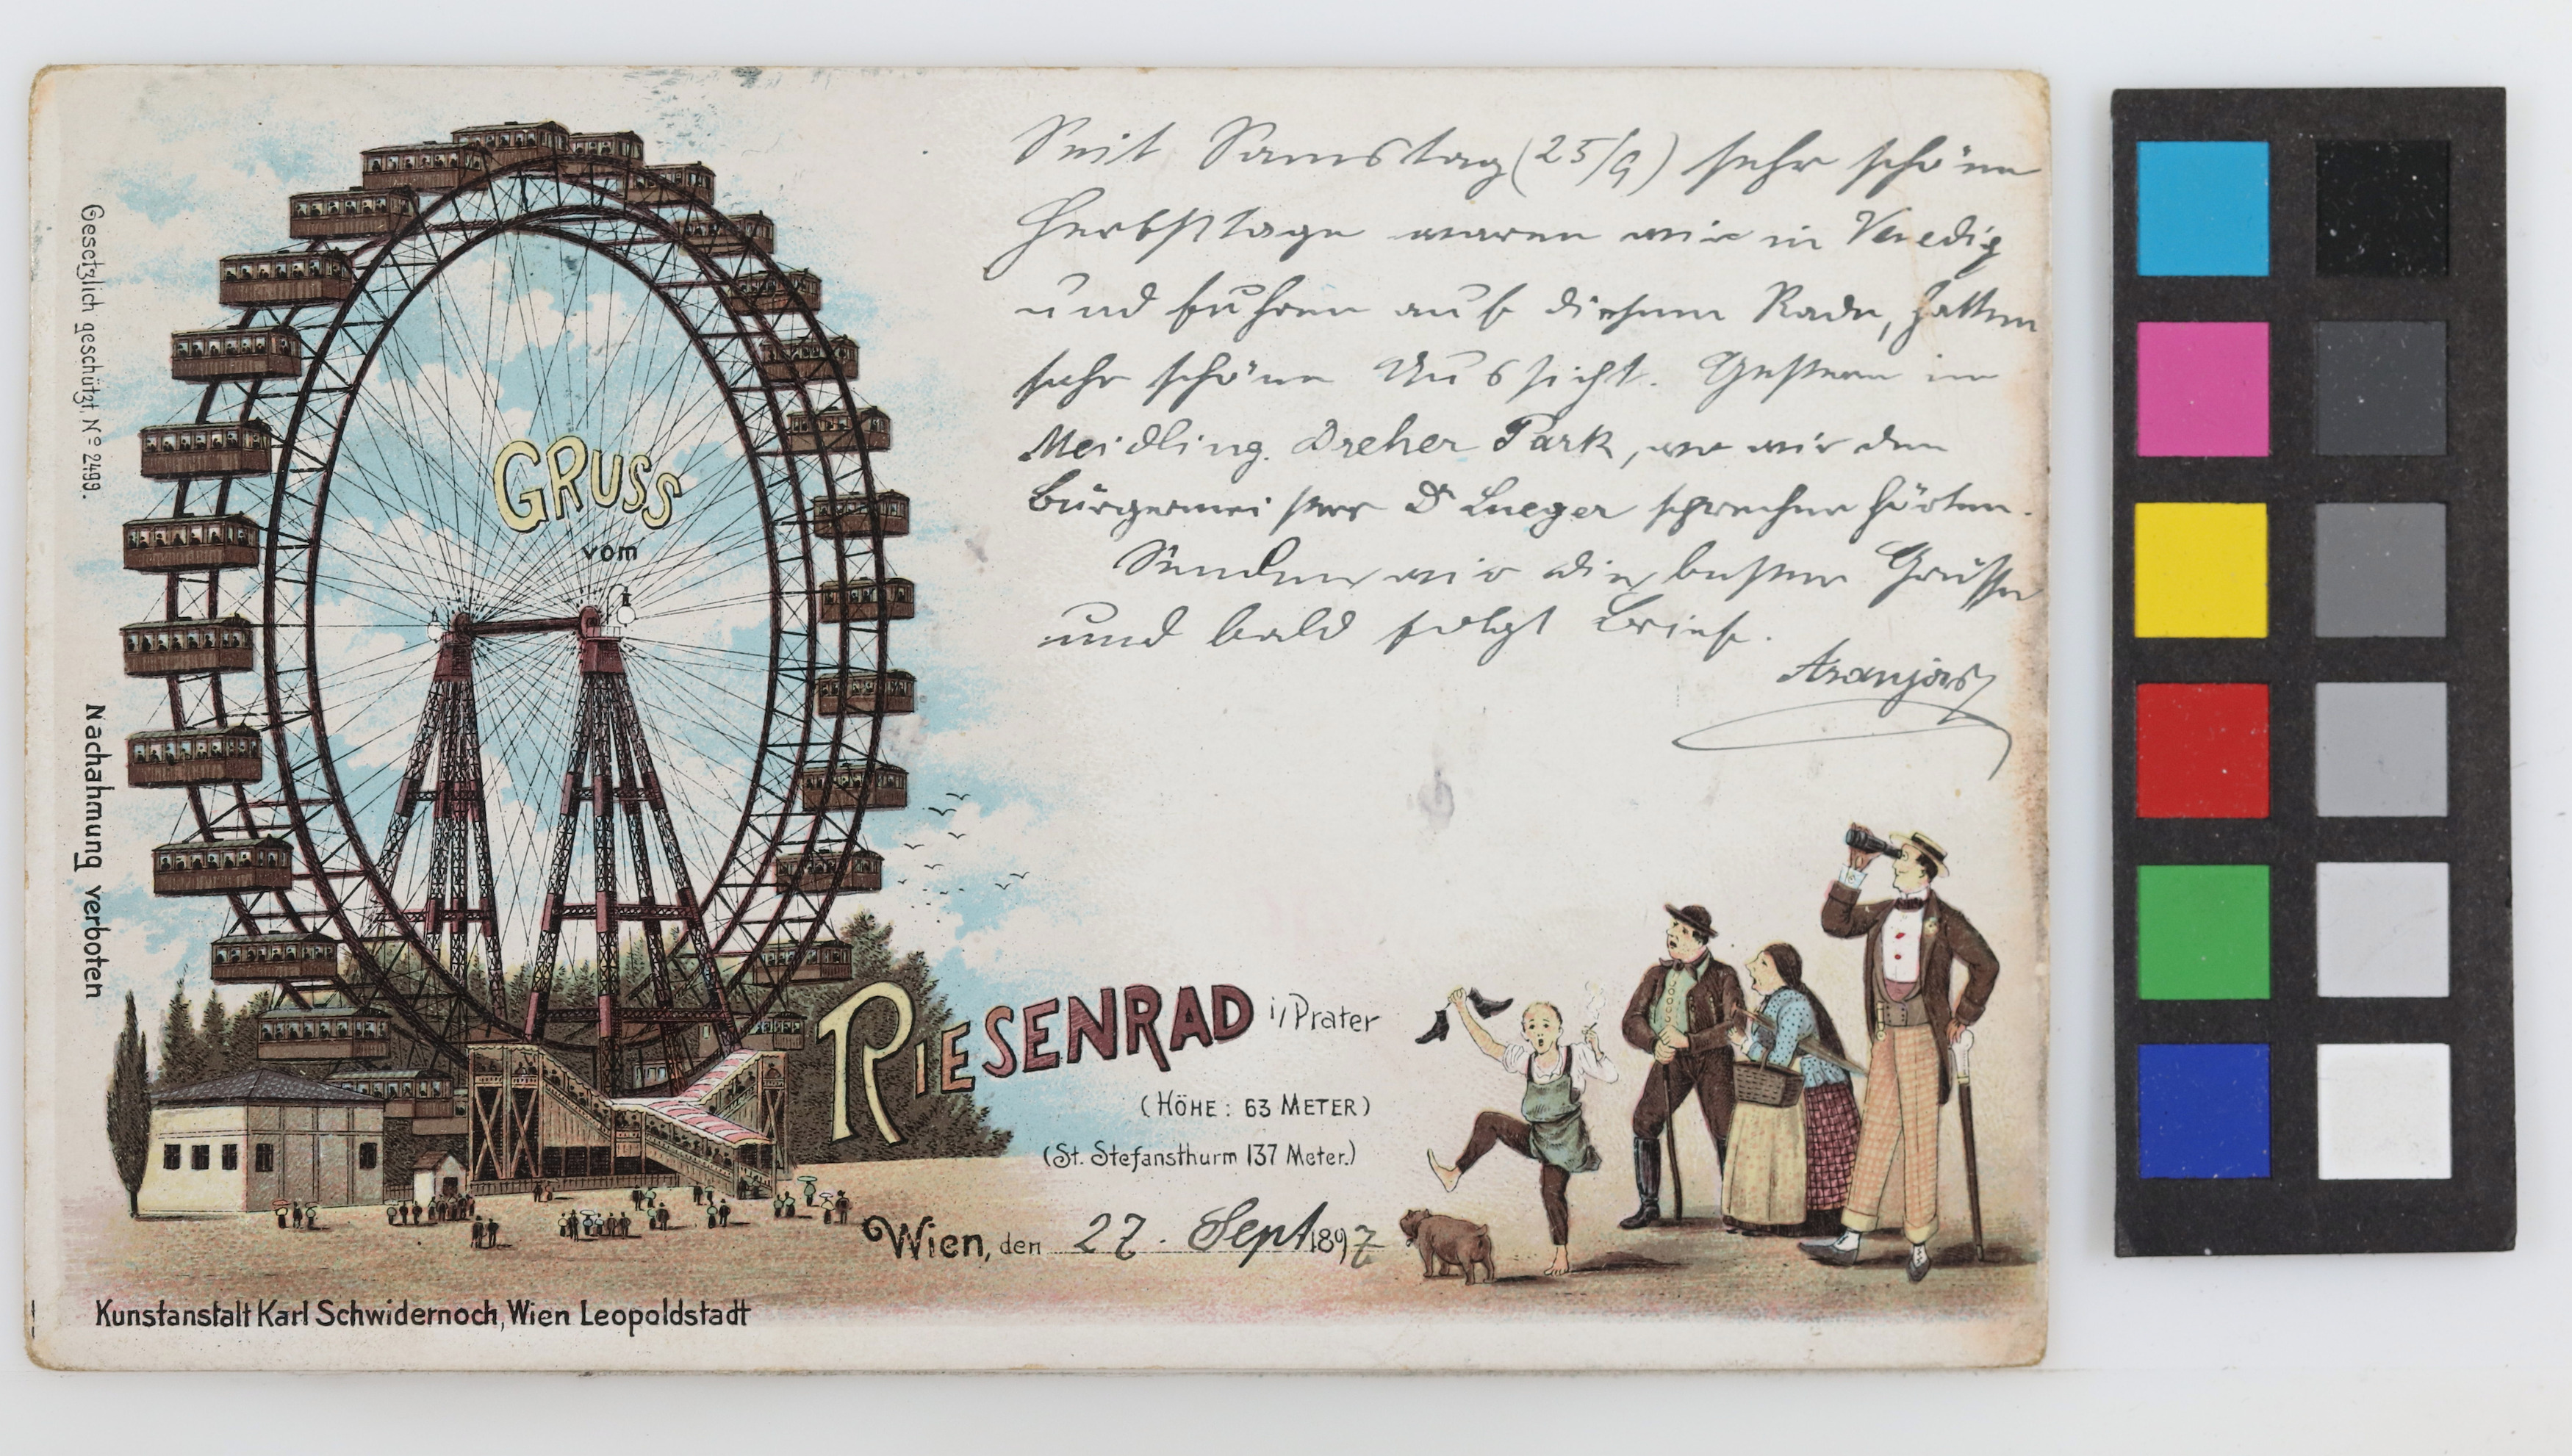 Seit Samstag (25/9) sehr schöne
Herbsttage waren wir in Venedig
und fuhren auf diesem Rade, hatten
sehr schöne Aussicht. Gestern in
Meidling. Dreher Park, wo wir den
Bürgermeister Dr Lueger sprechen hörten.
Senden wir die besten Grüsse
und bald folgt Brief.
GRUSS
vom
RIESENRAD i/Prater
(HÖHE: 63 METER)
(St. Stefansthurm 137 Meter.)
Wien, den 27. Sept 1897
Kunstanstalt Karl Schwidernoch, Wien Leopoldstadt
Gesetzlich geschützt. No 2499.
Nachahmung verboten